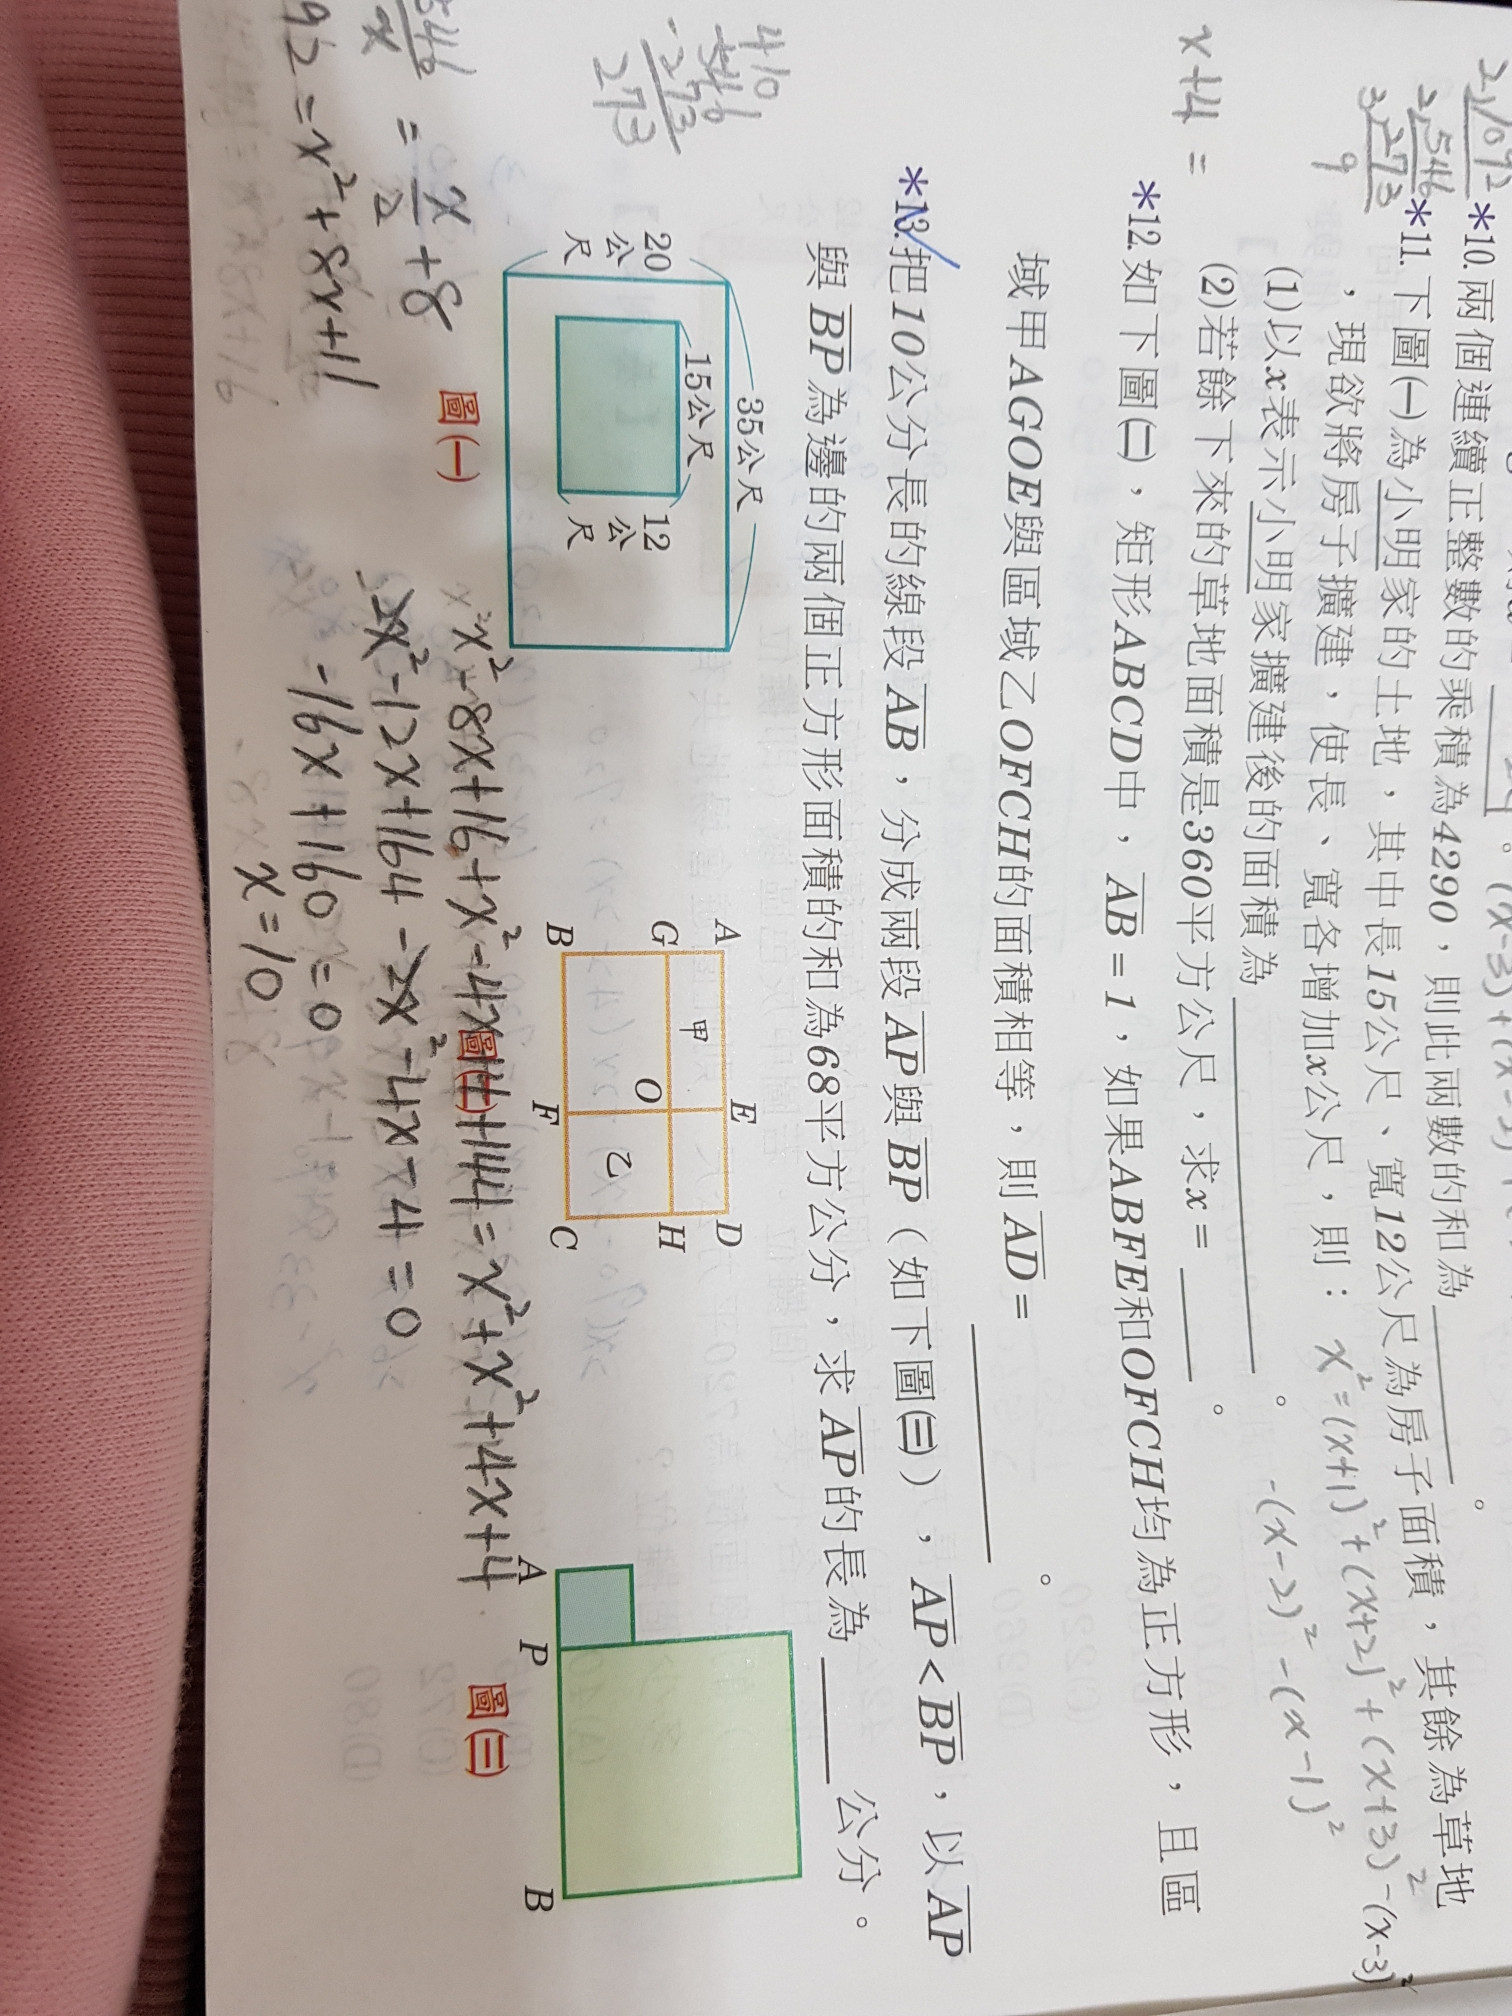 *10.兩個連續正整數的乘積為4290，則此兩數的和為
*11.下圖(一)為小明家的土地，其中長15公尺、寬12公尺為房子面積，其餘為草地
，現欲將房子擴建，使長、寬各增加x公尺，則：
(1)以x表示小明家擴建後的面積為。
(2)若餘下來的草地面積是360平方公尺，求x=。
*12.如下圖(二)，矩形ABCD中，AB=1，如果ABFE和OFCH均為正方形，且區
域甲AGOE與區域乙OFCH的面積相等，則AD=。
*13.把10公分長的線段AB，分成兩段AP與BP（如下圖(三)），AP<BP，以AP
與BP為邊的兩個正方形面積的和為68平方公分，求AP的長為公分。
x²=(x+1)²+(x+2)²+(x+3)²-(x-3)²
-(x-2)²-(x-1)²
x+4=
2 1092
2 546
3 273
9
410
546
-273
273
35公尺
20公尺
15公尺
12公尺
圖(一)
A
E
D
甲
G
O
H
乙
B
F
C
圖(二)
A
P
B
圖(三)
546/x = x/2 + 8
92=x²+8x+11
x²-8x+16+x²-4x+4+144=x²+x²+4x+4
2x²-12x+164-2x²-4x-4=0
-16x+160=0
x=10